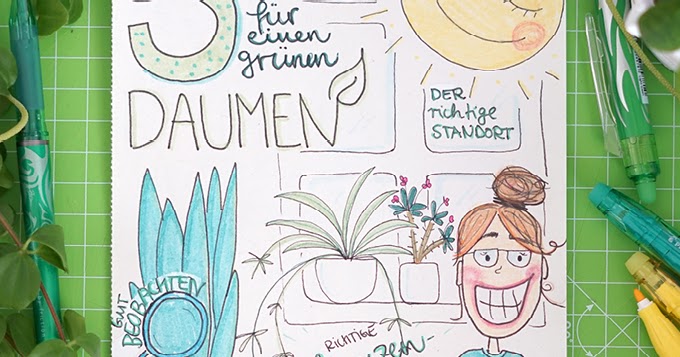 3
für
einen
grünen
DAUMEN
DER
richtige
STANDORT
GUT
BEOBACHTEN
RICHTIGE